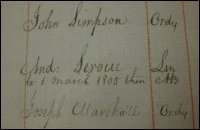 John Simpson Ordy
And: Serouie Lm
to 1 March 1805 then AB
Joseph Marshall Ordy